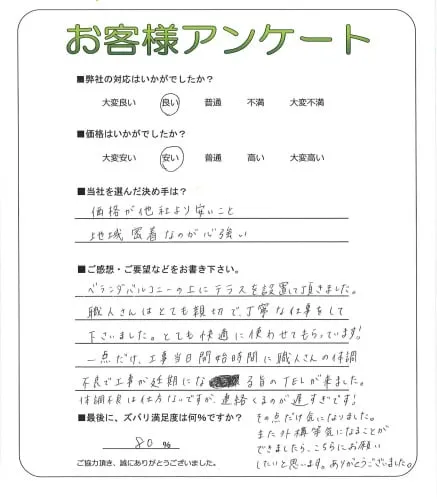 お客様アンケート
■弊社の対応はいかがでしたか?
大変良い 良い 普通 不満 大変不満
■価格はいかがでしたか?
大変安い 安い 普通 高い 大変高い
■当社を選んだ決め手は?
価格が他社より安いこと
地域密着なのが心強い
■ご感想・ご要望などをお書き下さい。
ベランダバルコニーの上にテラスを設置して頂きました。
職人さんはとても親切で、丁寧な仕事をして
下さいました。とても快適に使わせてもらっています!
一点だけ、工事当日開始時間に職人さんの体調
不良で工事が延期にな る旨のTELが来ました。
体調不良は仕方ないですが、連絡くるのが遅すぎです!
■最後に、ズバリ満足度は何%ですか?
80 %
その点だけ気になりました。
また外構等気になることが
できましたら、こちらにお願い
したいと思います。ありがとうございました。
ご協力頂き、誠にありがとうございました。